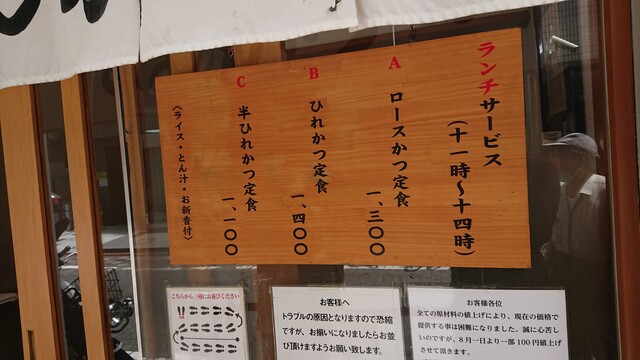 ランチサービス
(十一時〜十四時)
A
ロースかつ定食
一、三〇〇
B
ひれかつ定食
一、四〇〇
C
半ひれかつ定食
一、一〇〇
〈ライス・とん汁・お新香付〉
こちらから三列にお並びください
お客様へ
トラブルの原因となりますので恐縮
ですが、お揃いになりましたらお並
び頂けますようお願い致します。
お客様各位
全ての原材料の値上げにより、現在の価格で
提供する事は困難になりました。誠に心苦し
いのですが、8月一日より一部100円値上げ
させて頂きます。